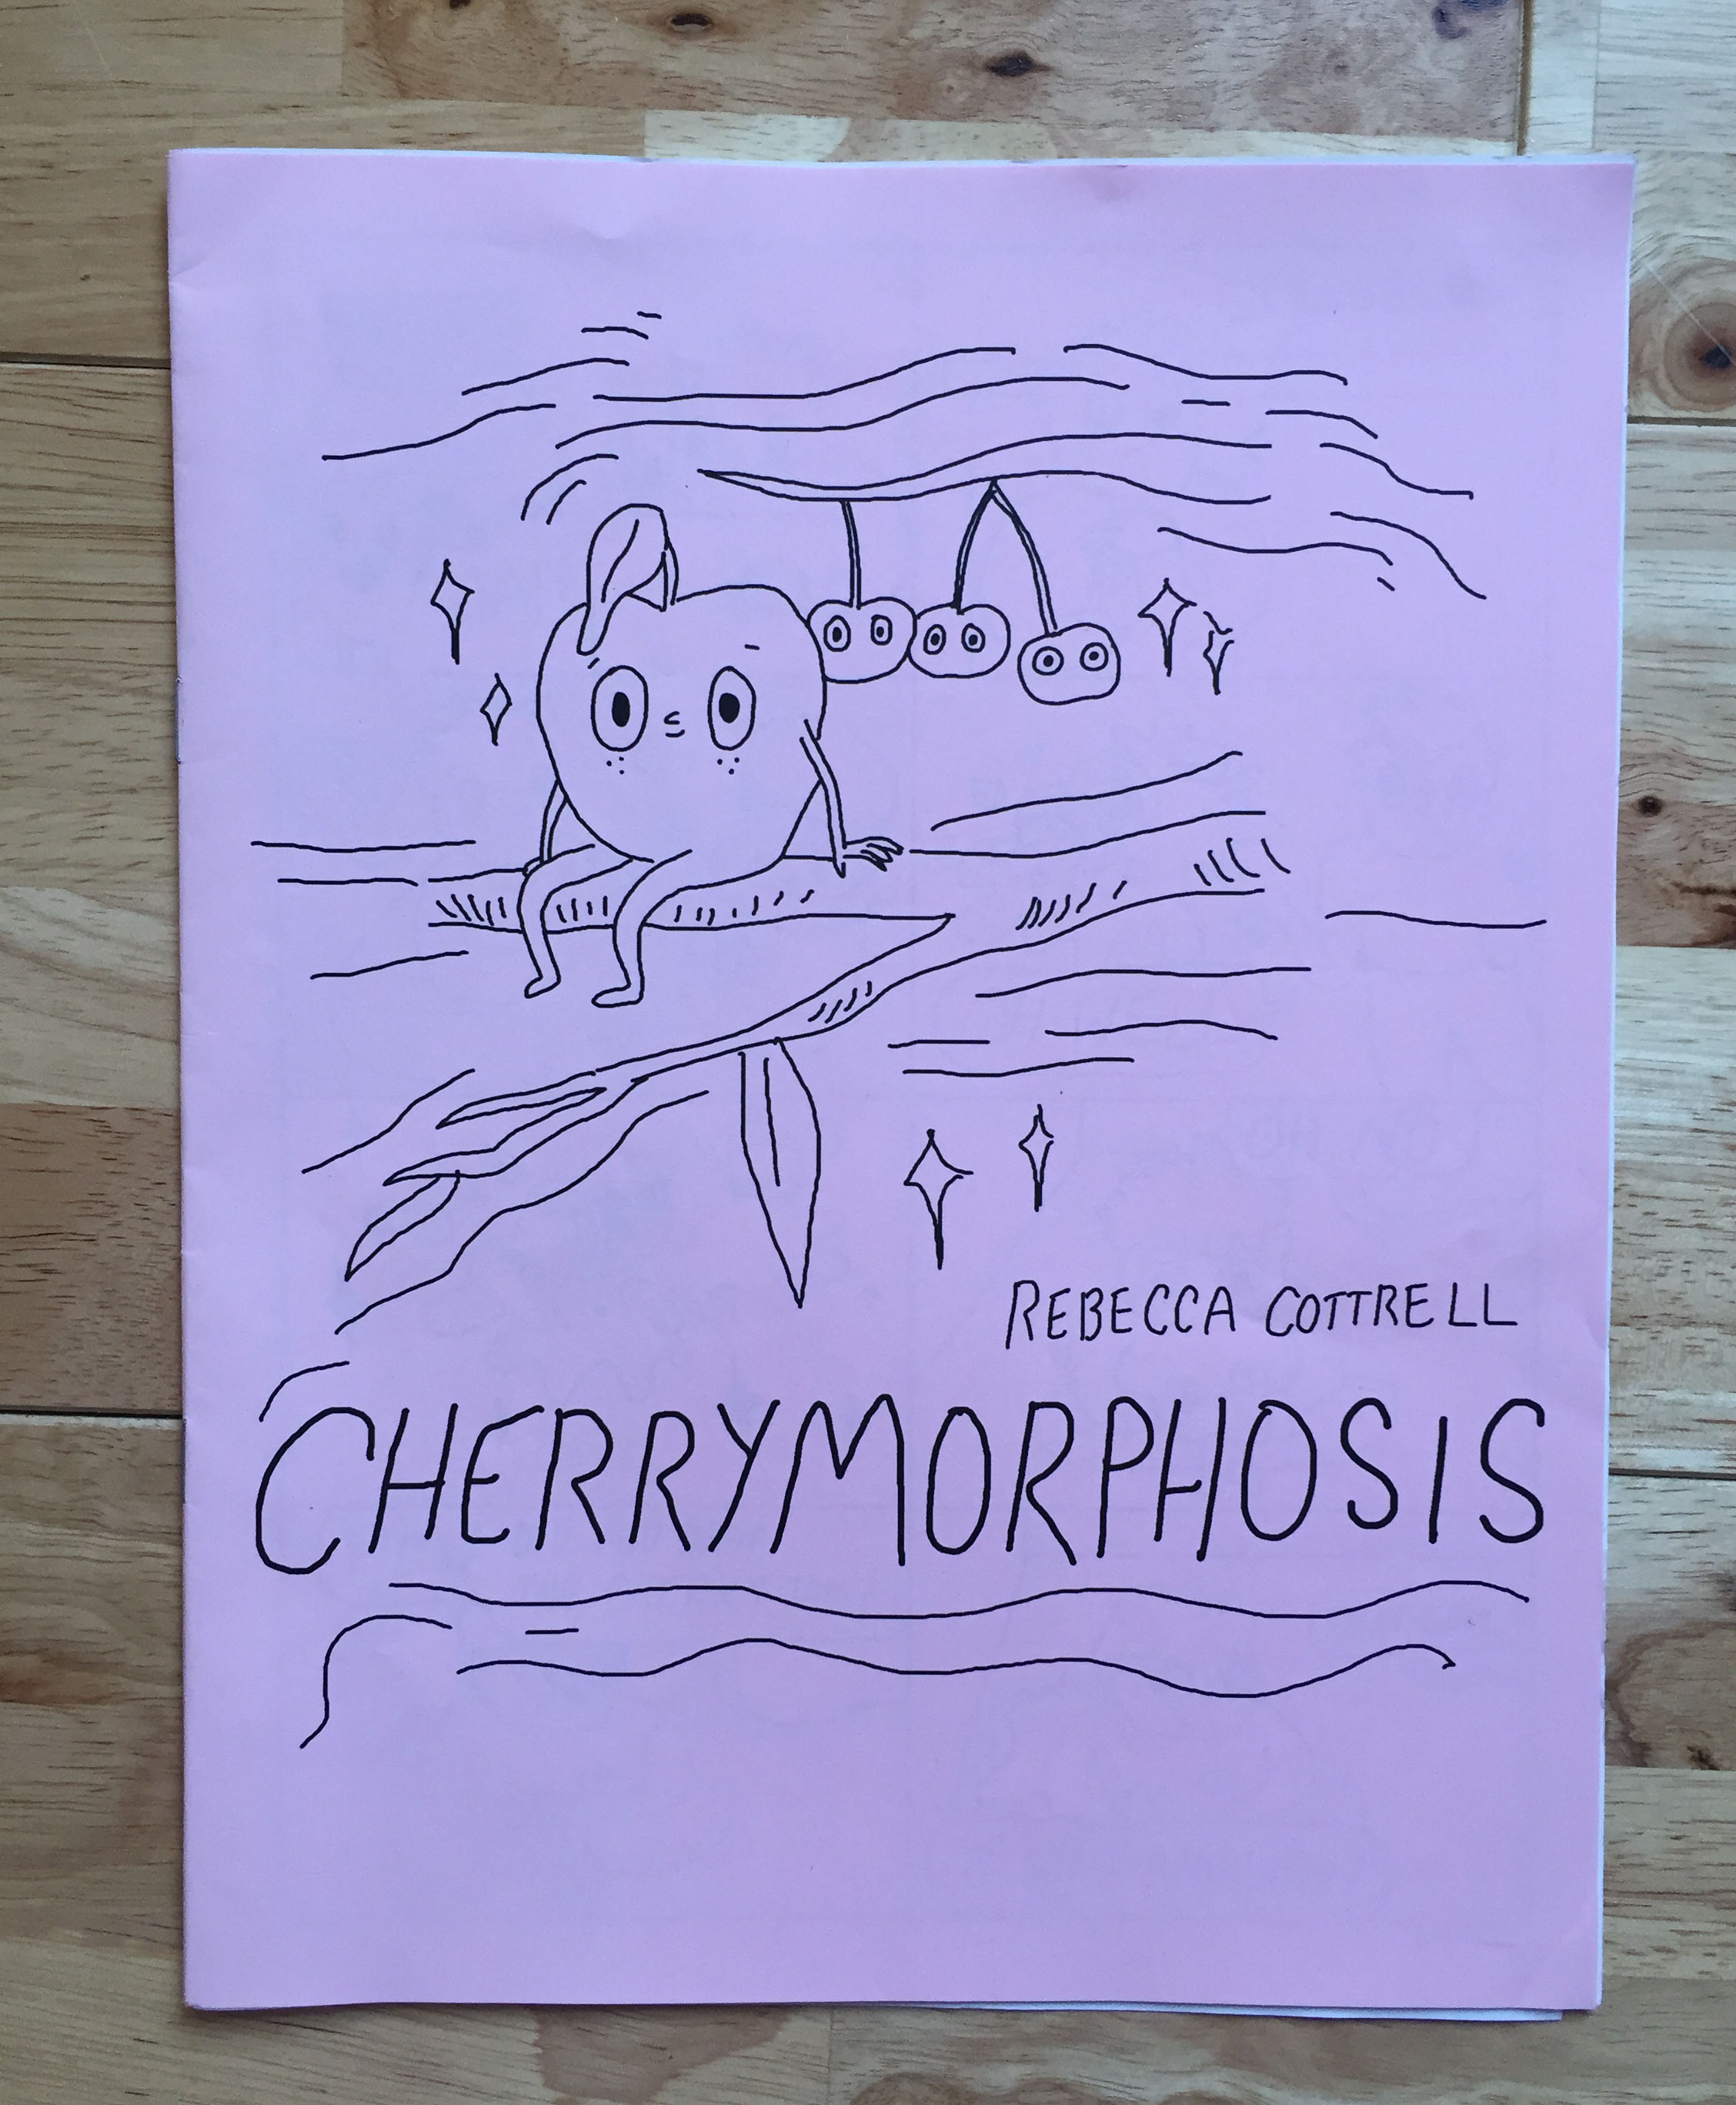 REBECCA COTTRELL
CHERRYMORPHOSIS